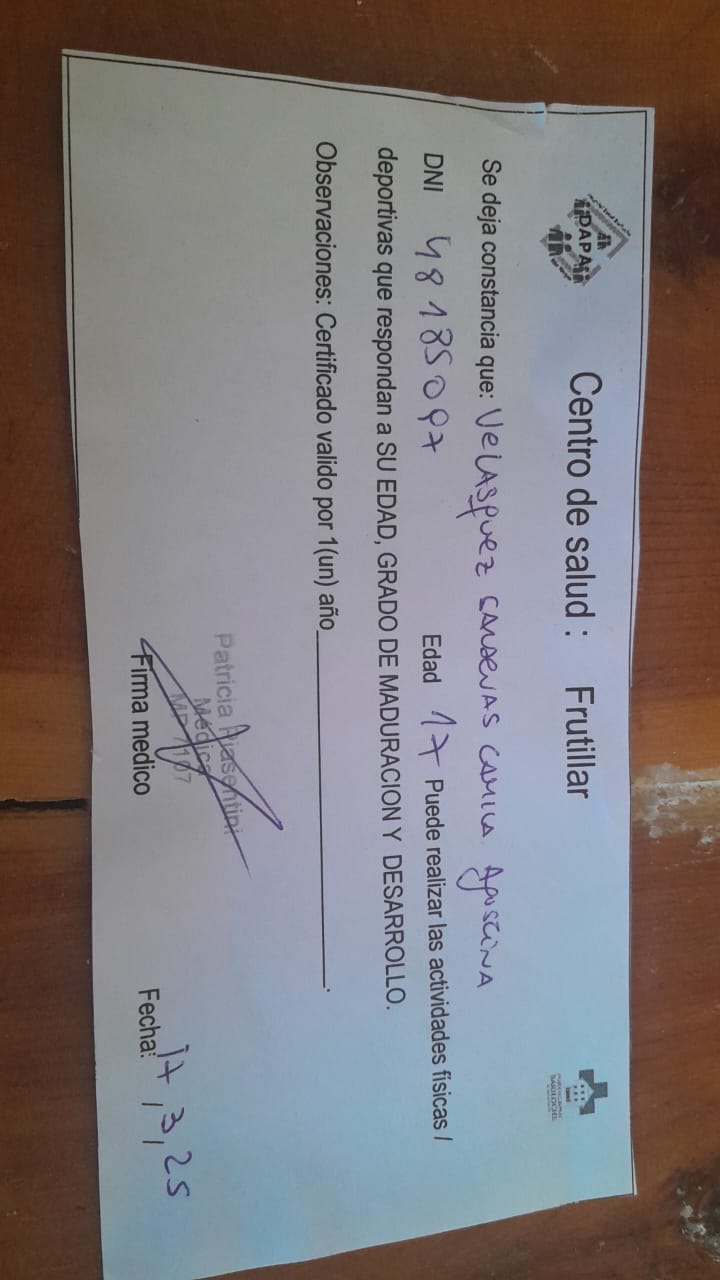 DAPA
Centro de salud : Frutillar
BARILOCHE
Se deja constancia que: Velasquez Cardenas Camila Agostina
DNI 48185097 Edad 17 Puede realizar las actividades físicas /
deportivas que respondan a SU EDAD, GRADO DE MADURACION Y DESARROLLO.
Observaciones: Certificado valido por 1(un) año
Patricia Piasentini
Médica
Firma medico
Fecha: 17, 3, 25